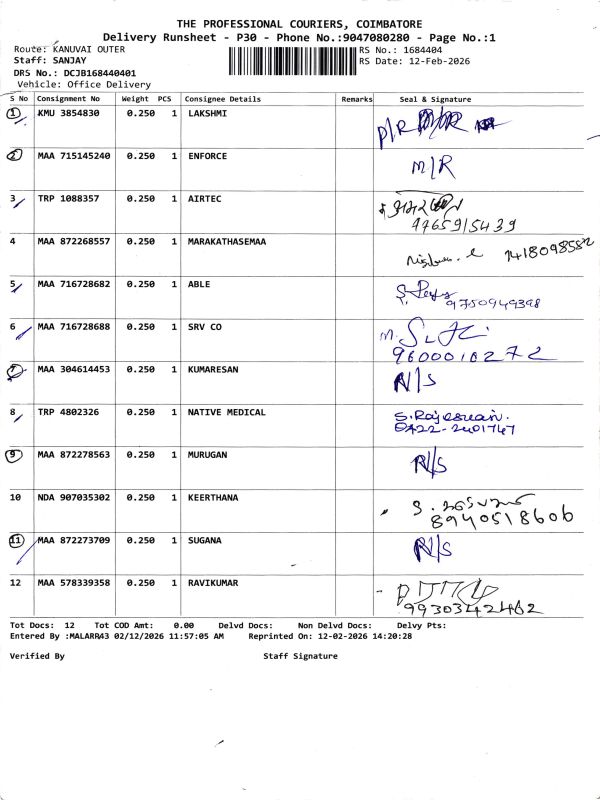 THE PROFESSIONAL COURIERS, COIMBATORE
Delivery Runsheet - P30 - Phone No.:9047080280 - Page No.:1
Route: KANUVAI OUTER
RS No.: 1684404
Staff: SANJAY
RS Date: 12-Feb-2026
DRS No.: DCJB168440401
Vehicle: Office Delivery
S No Consignment No Weight PCS Consignee Details Remarks Seal & Signature
1 KMU 3854830 0.250 1 LAKSHMI P/R
2 MAA 715145240 0.250 1 ENFORCE M/R
3 TRP 1088357 0.250 1 AIRTEC
9765915439
4 MAA 872268557 0.250 1 MARAKATHASEMAA
5 MAA 716728682 0.250 1 ABLE
9750949398
6 MAA 716728688 0.250 1 SRV CO
9600010272
7 MAA 304614453 0.250 1 KUMARESAN N/S
8 TRP 4802326 0.250 1 NATIVE MEDICAL S.Rajeswari.
0422-2401747
9 MAA 872278563 0.250 1 MURUGAN N/S
10 NDA 907035302 0.250 1 KEERTHANA
8940518606
11 MAA 872273709 0.250 1 SUGANA N/S
12 MAA 578339358 0.250 1 RAVIKUMAR
Tot Docs: 12 Tot COD Amt: 0.00 Delvd Docs: Non Delvd Docs: Delvy Pts:
Entered By :MALARR43 02/12/2026 11:57:05 AM Reprinted On: 12-02-2026 14:20:28
Verified By Staff Signature